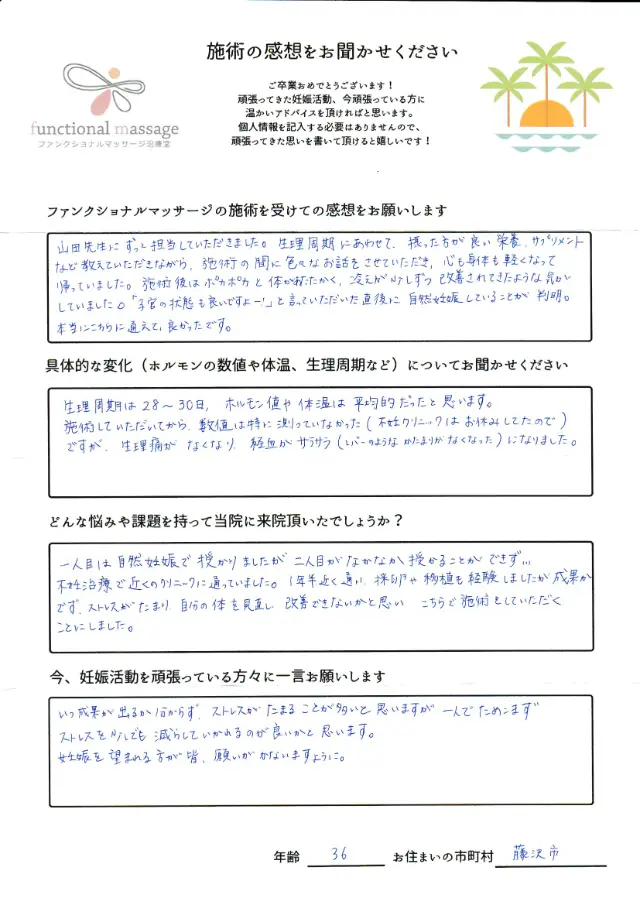 施術の感想をお聞かせください
functional massage
ファンクショナルマッサージ治療室
ご卒業おめでとうございます！
頑張ってきた妊娠活動、今頑張っている方に
温かいアドバイスを頂ければと思います。
個人情報を記入する必要はありませんので、
頑張ってきた思いを書いて頂けると嬉しいです！
ファンクショナルマッサージの施術を受けての感想をお願いします
山田先生にずっと担当していただきました。生理周期にあわせて、摂った方が良い栄養、サプリメント
など教えていただきながら、施術の間に色々なお話をさせていただき、心も身体も軽くなって
帰っていました。施術後はポカポカと体があたたかく、冷えが少しずつ改善されてきたような気が
していました。「子宮の状態も良いですよー！」と言っていただいた直後に自然妊娠していることが判明。
本当にこちらに通えて良かったです。
具体的な変化（ホルモンの数値や体温、生理周期など）についてお聞かせください
生理周期は28～30日、ホルモン値や体温は平均的だったと思います。
施術していただいてから、数値は特に測っていなかった（不妊クリニックはお休みしてたので）
ですが、生理痛がなくなり、経血がサラサラ（レバーのようなかたまりがなくなった）になりました。
どんな悩みや課題を持って当院に来院頂いたでしょうか？
一人目は自然妊娠で授かりましたが二人目がなかなか授かることができず…
不妊治療で近くのクリニックに通っていました。1年半近く通い、採卵や移植も経験しましたが成果が
でず、ストレスがたまり、自分の体を見直し、改善できないかと思い、こちらで施術をしていただく
ことにしました。
今、妊娠活動を頑張っている方々に一言お願いします
いつ成果が出るか分からず、ストレスがたまることが多いと思いますが一人でためこまず
ストレスを少しでも減らしていかれるのが良いかと思います。
妊娠を望まれる方が皆、願いがかないますように。
年齢 36 お住まいの市町村 藤沢市